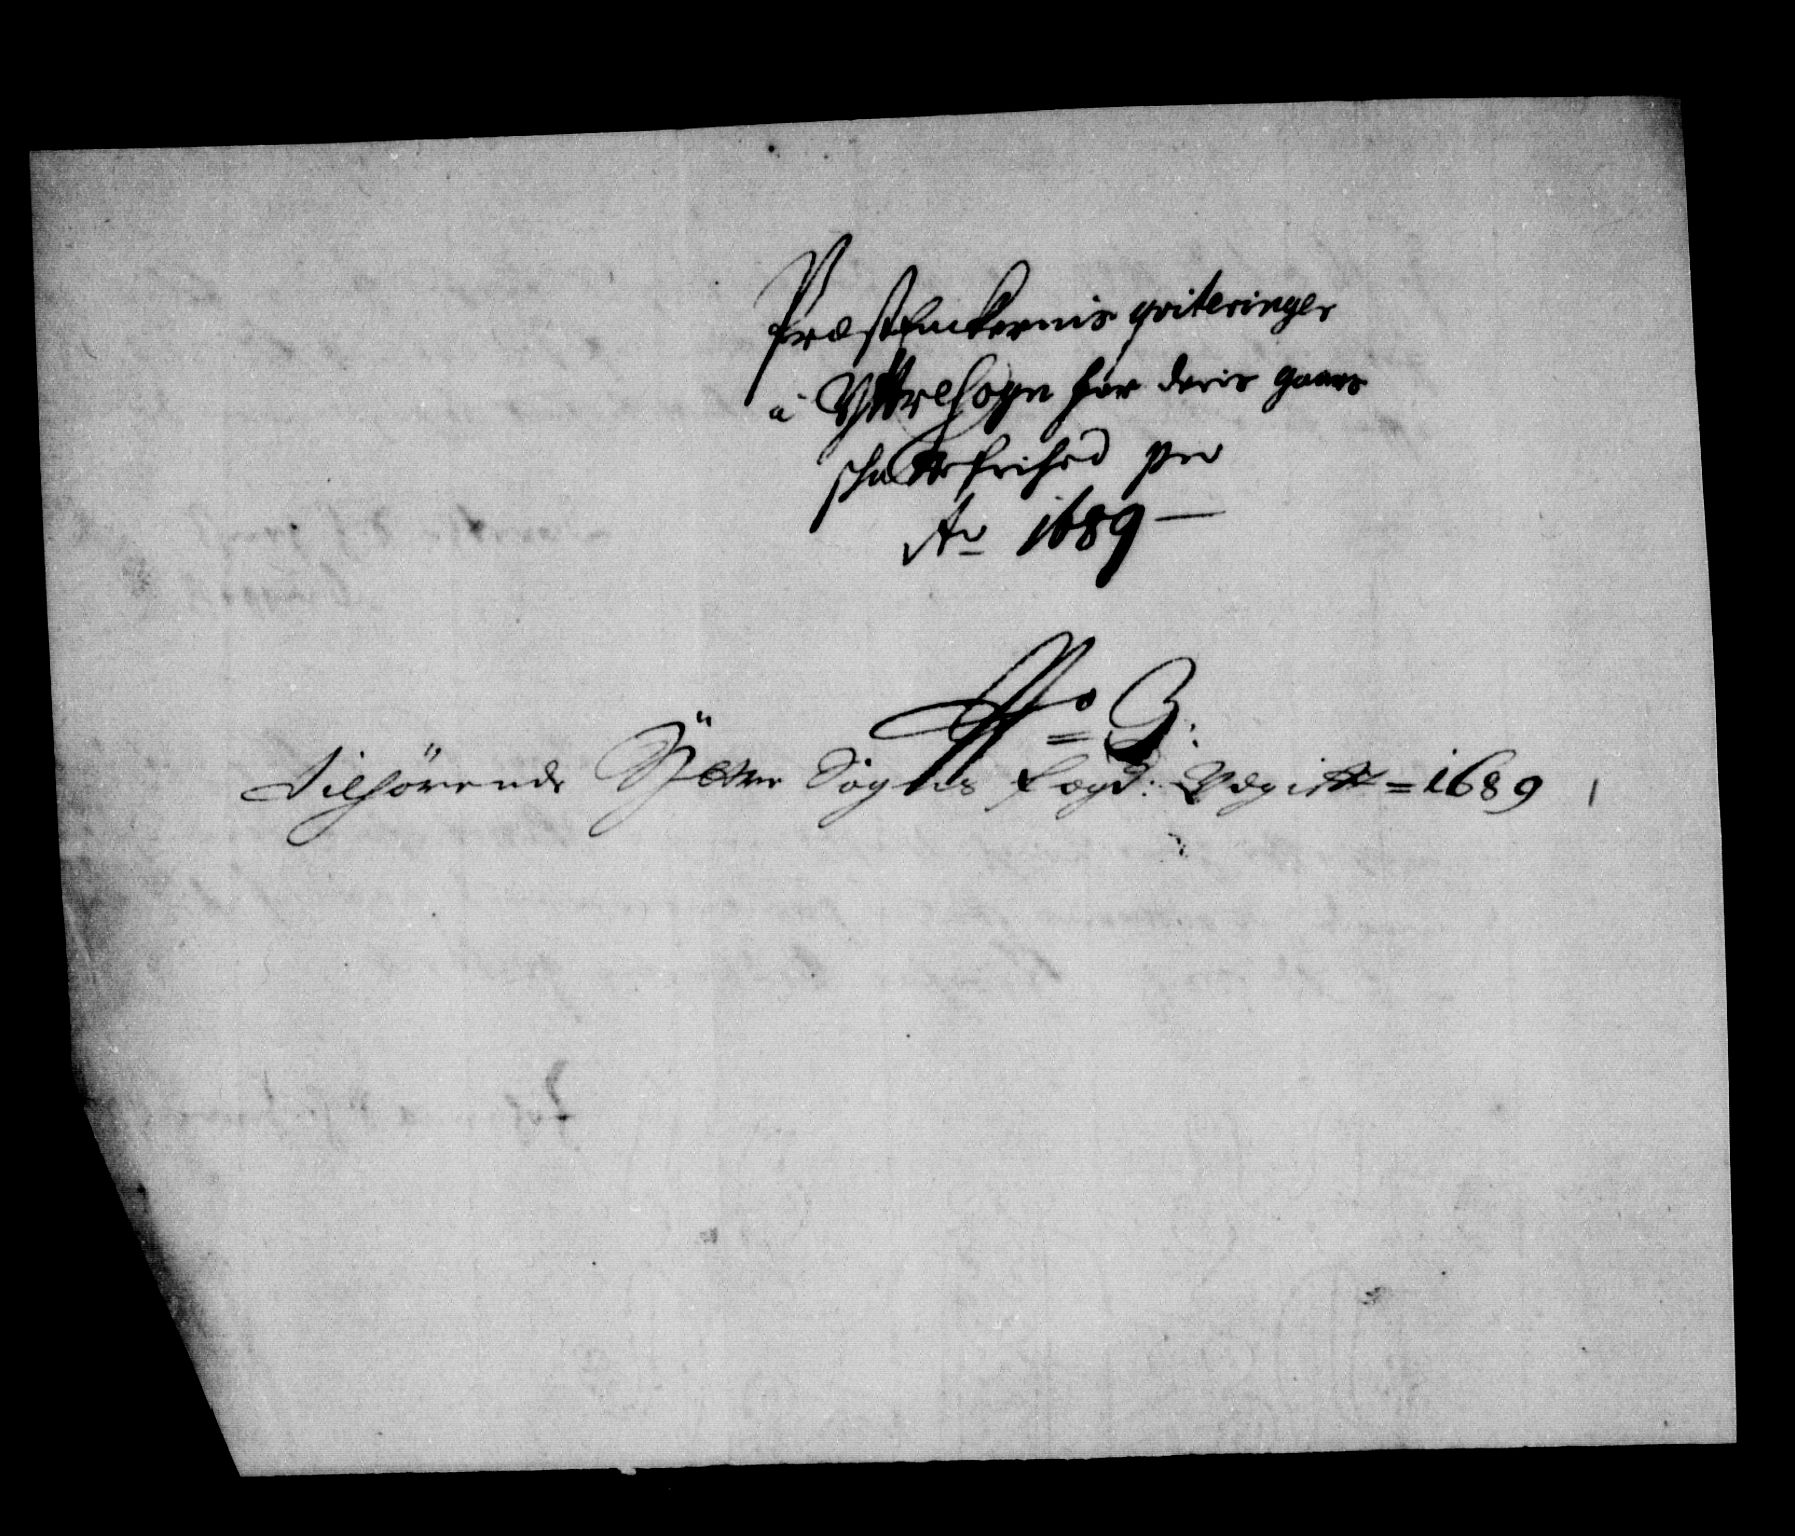 Præst Enckernis qviteringer
à Yttre Sogn for deris gaars
schatte frihed pro
Ao 1689 —
No = 3:
Tilhörende Yttre Sogns Fogd: Regist = 1689